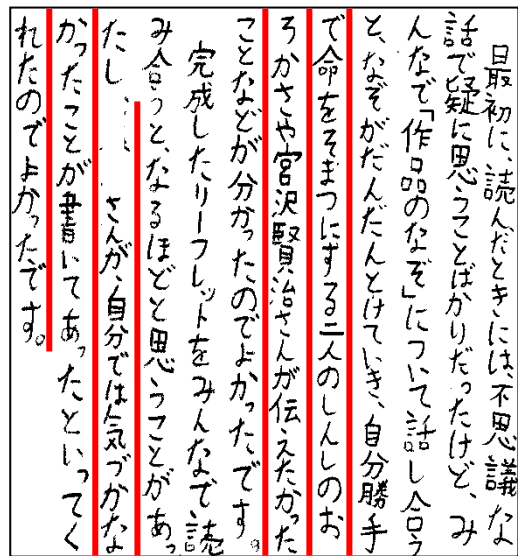 最初に、読んだときには、不思議な
話で疑に思うことばかりだったけど、み
んなで「作品のなぞ」について話し合う
と、なぞがだんだんとけていき、自分勝手
で命をそまつにする二人のしんしのお
ろかさや宮沢賢治さんが伝えたかった
ことなどが分かったのでよかったです。
完成したリーフレットをみんなで読
み合うと、なるほどと思うことがあっ
たし
さんが、自分では気づかな
かったことが書いてあったといってく
れたのでよかったです。